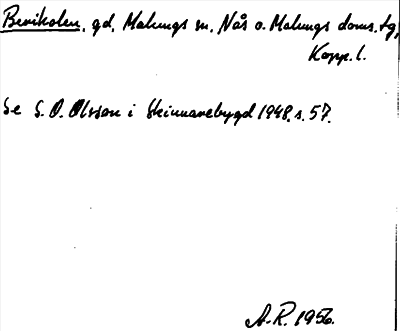 Benikolen, gd, Malungs sn, Nås o. Malungs doms. tg,
Kopp. l.
Se S. O. Olsson i Skinnarebygd 1948, s. 57.
A. R. 1956.